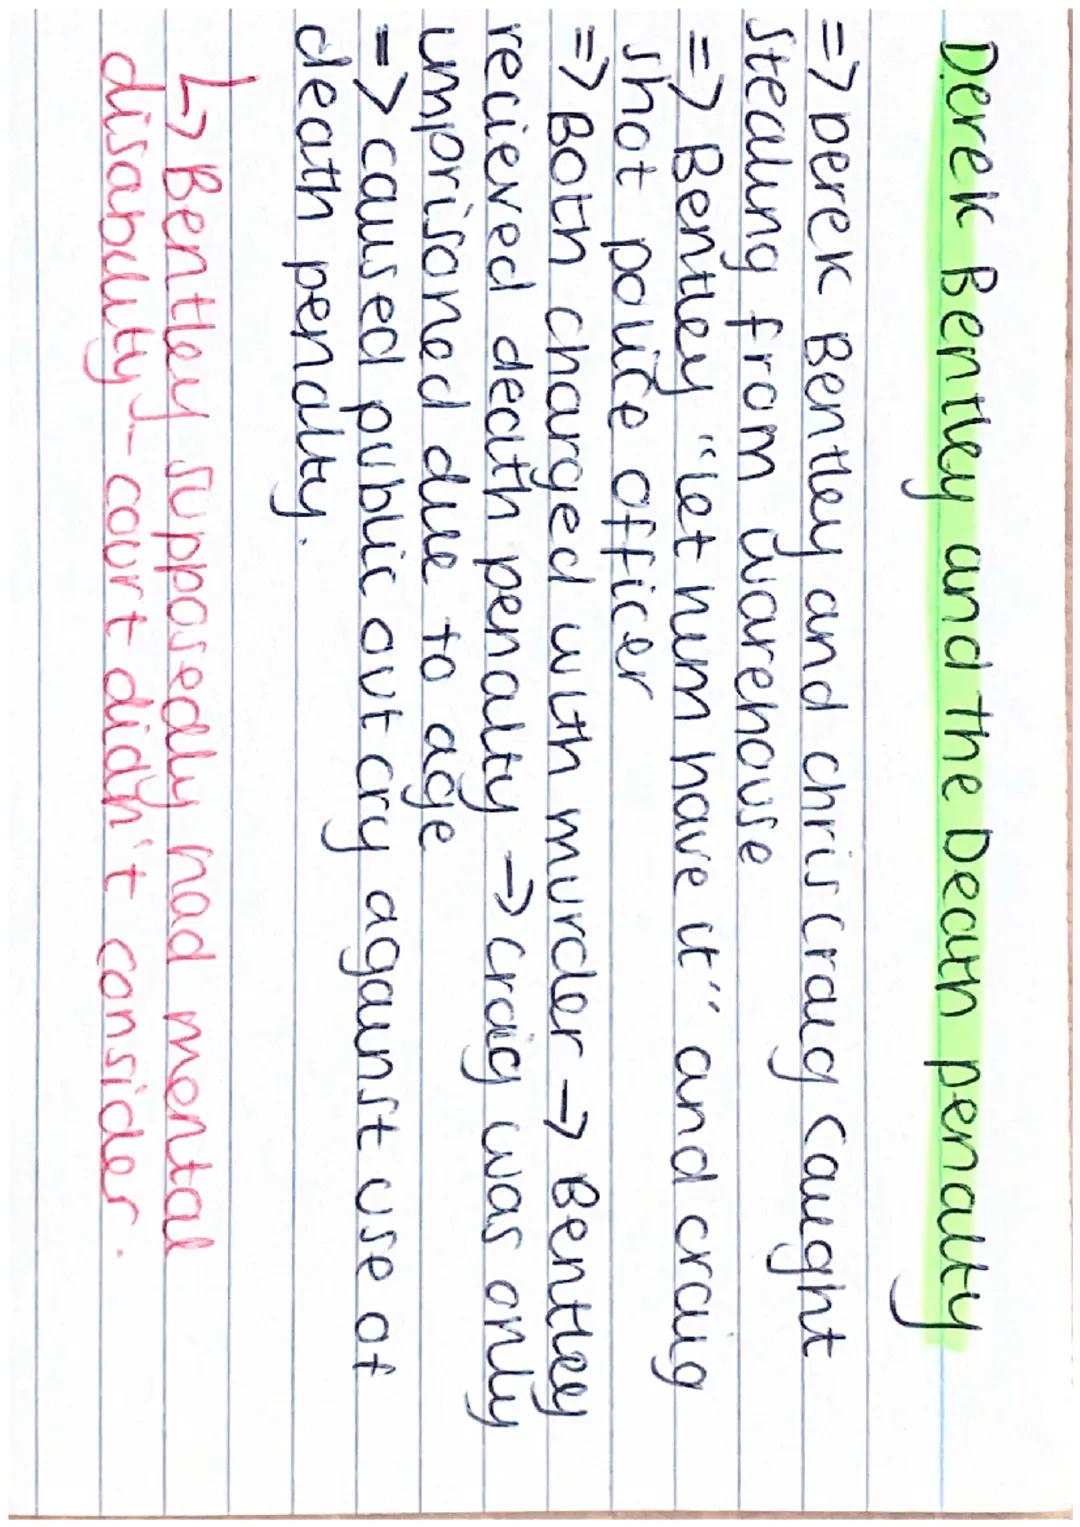 Derek Bentley and the Death penalty
=> Derek Bentley and chris craig caught
stealing from warehouse
=> Bentley "let him have it" and craig
shot police officer
=> Both charged with murder -> Bentley
recieved death penalty -> craig was only
imprisoned due to age
=> caused public out cry against use of
death penalty.
↳ Bentley supposedly had mental
disability - court didn't consider.